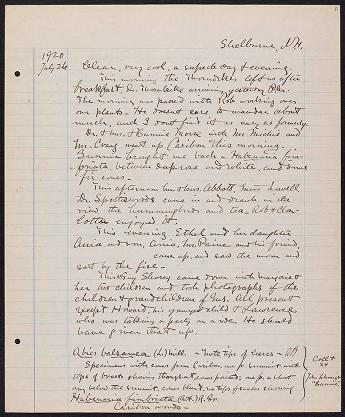 Shelburne, N.H.
1920
July 26 Clear, very cool, a superb day & evening.
This morning the Thorndikes left us after
breakfast, Dr. Thorndike arriving yesterday
The morning was passed with Rob working over
our plants. He doesnt care to wander about
much, and I dont find it as easy as formerly.
Dr. & Mrs. & Bunnie Morse with Mrs. Michie and
Mr. Craig went up Caribou this morning.
Bunnie brought me back a Habenaria fim-
briata between and white, and some
fir cones.
This afternoon Mr. & Mrs. Abbott, Miss Lowell
Dr. came in and drank in the
view the hummingbirds and tea. Rob &
Lottie enjoyed it.
This evening Ethel and her daughter
Anna and son, Mrs. Paine and his friend,
came up, and saw the moon and
sat by the fire.
Shorey came down with Margaret &
her two children and took photographs of the
children & grandchildren of Mrs. All present
except Howard, his youngest child & Lawrence
who was taking a party on a ride. He should
have given that up.
Abies balsamea (L.) Mill. - Note tips of cones
Specimens with cones from Caribou,
tips of bracts showing throughout cones
way below the summit, cones no tips of scales showing
Habenaria fimbriata (Ait.) R. Br.
Caribou woods
Coll. &
by
"Bunnie"